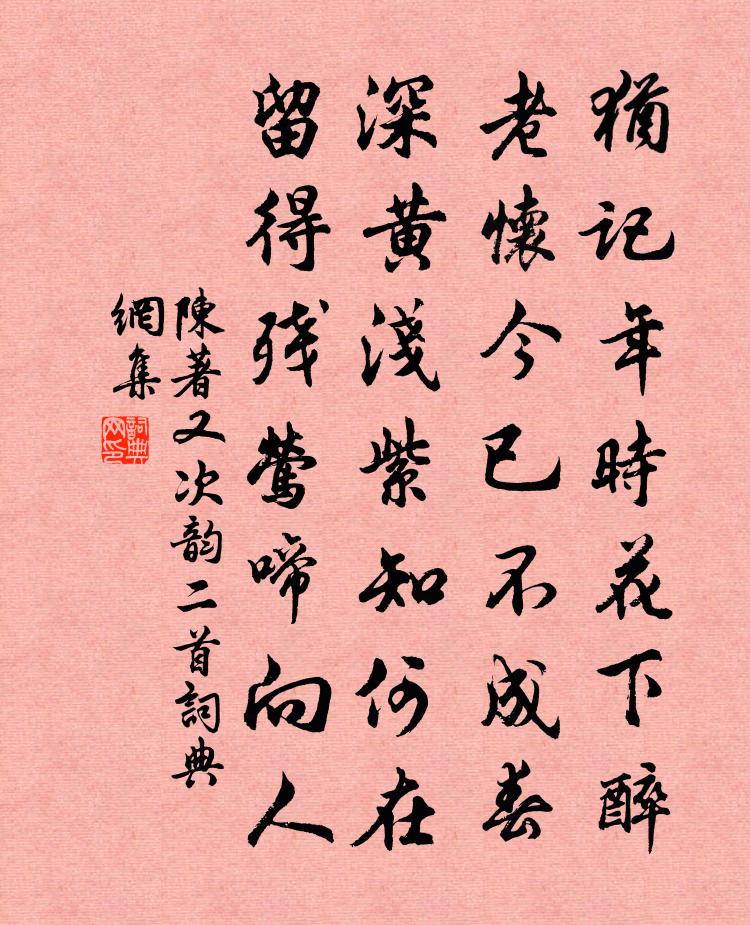 猶记年時花下醉
老懷今已不成春
深黄淺紫知何在
留得残鶯啼向人
陳著又次韵二首詞典
網集
詞典
网印